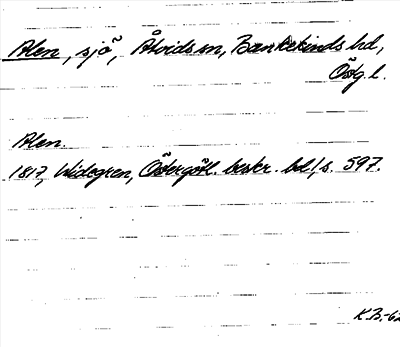 Alen, sjö, Åtvids sn, Bankekinds hd,
Östg. l.
Alen.
1817, Widegren, Östergötl. beskr. bd 1, s. 597.
K.B.-62